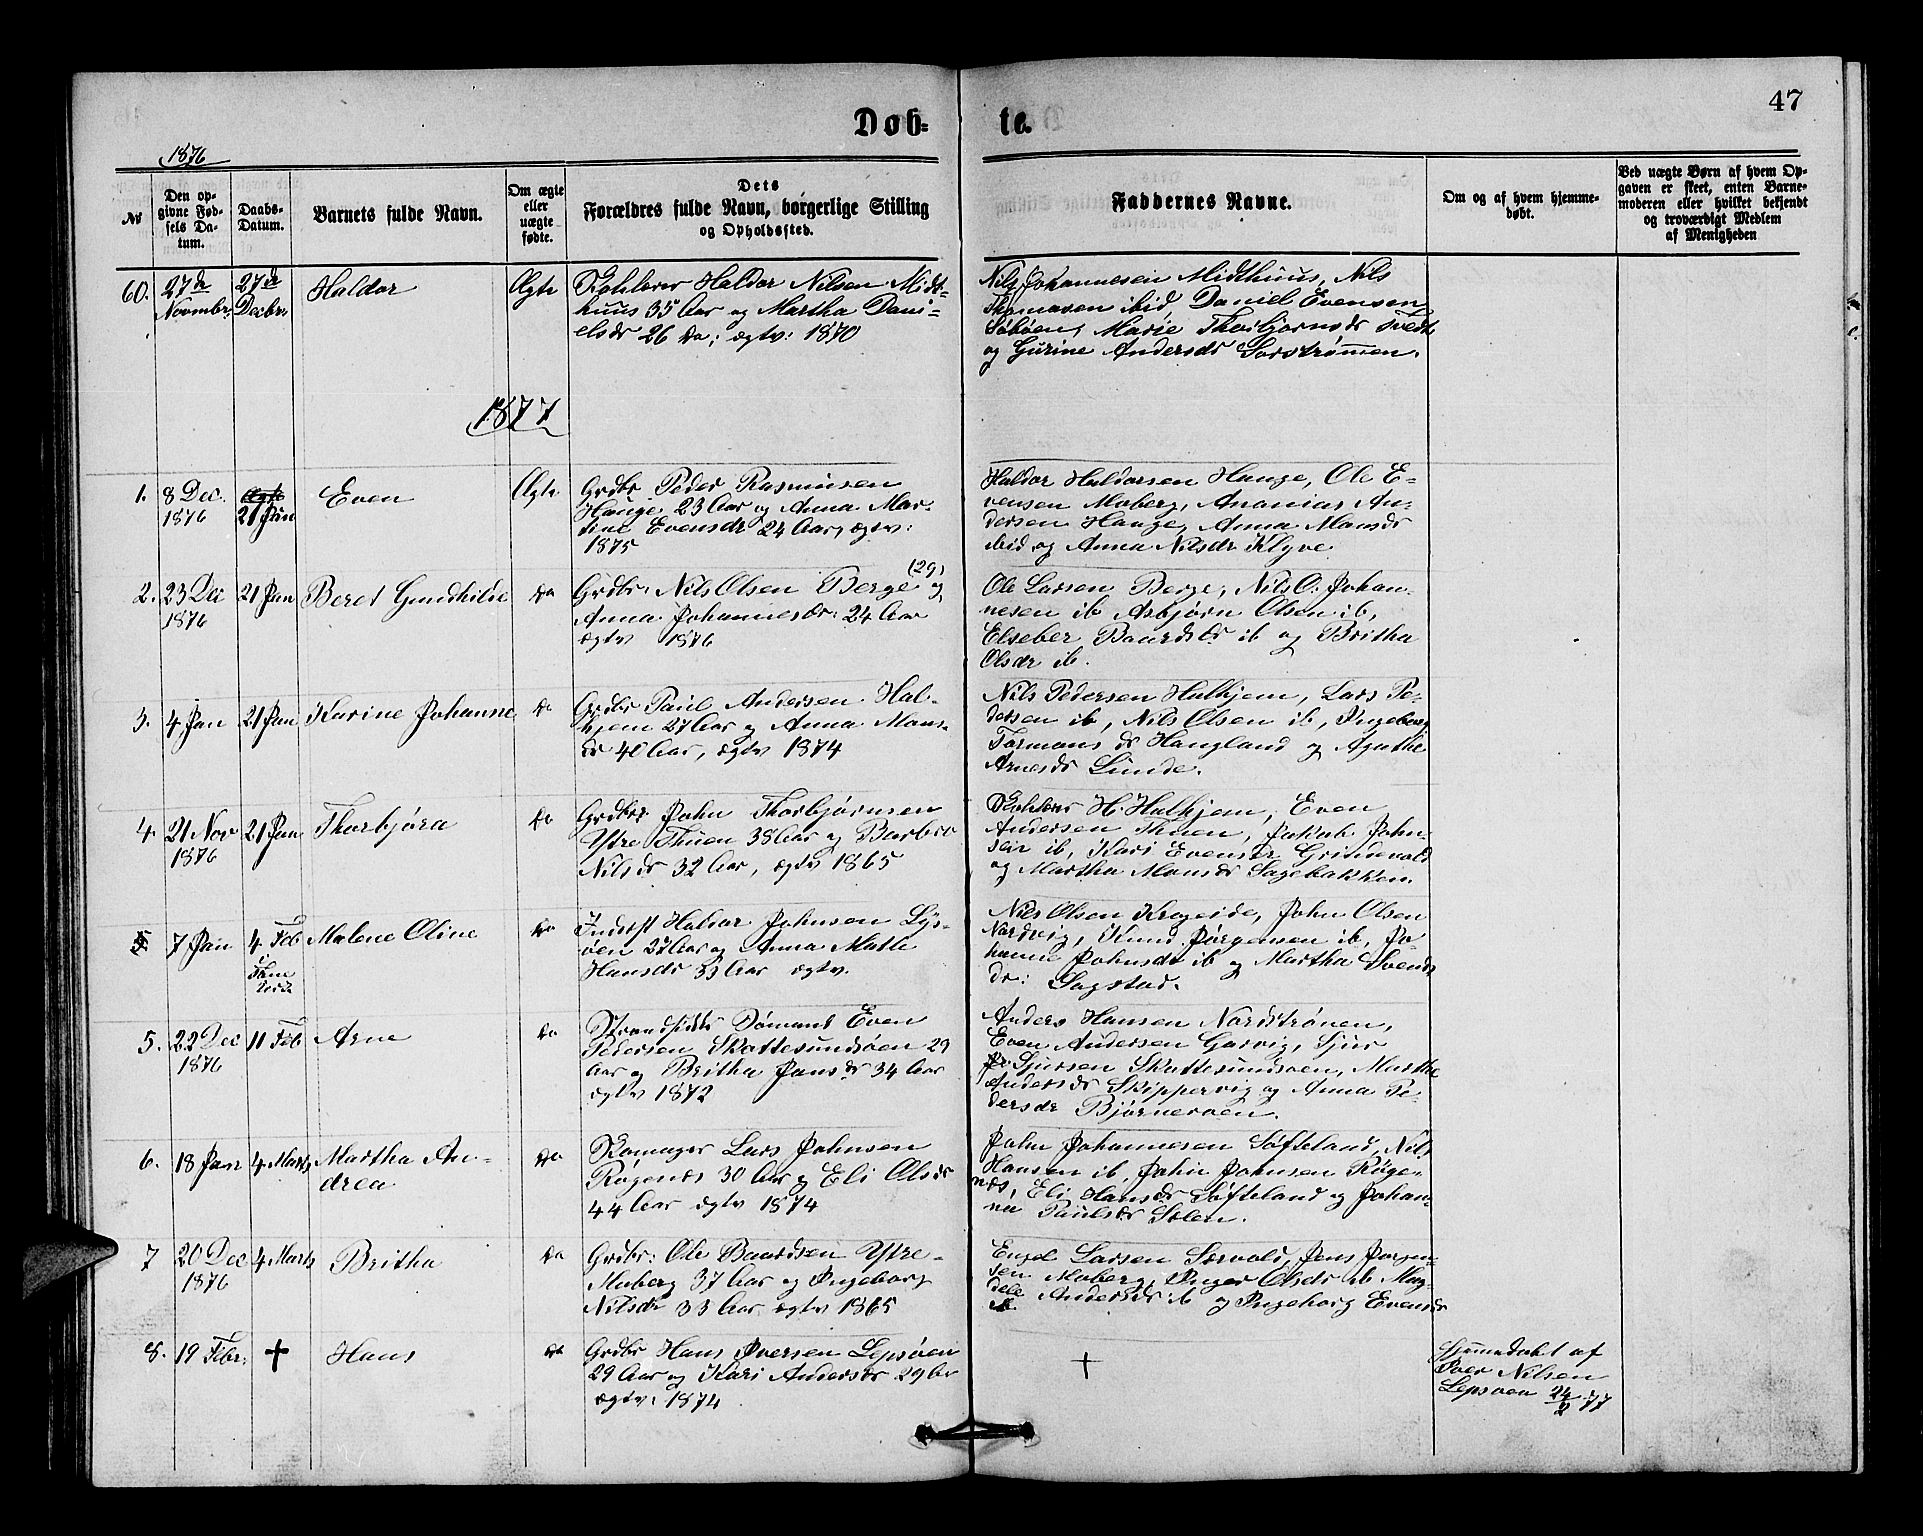 47
Døb- te.
1876
No
Den opgivne Fødsels Datum.
Daabs-Datum.
Barnets fulde Navn.
Om ægte eller uægte fødte.
Dets Forældres fulde Navn, borgerlige Stilling og Opholdssted.
Faddernes Navne.
Om og af hvem hjemmedøbt.
Ved uægte Børn af hvem Opgaven er skeet, enten Barnemoderen eller hvilket bekjendt og troværdigt Medlem af Menigheden
60. 27de Novembr. 27de Decbr. Haldor Ægte
Haldor Nilsen Midt-
huus 35 Aar og Martha Dani-
elsdr 26 do; ægtv: 1870
Nils Johannesen Midthuus, Nils
Thomasen ibid, Daniel Evensen
Søbøen, Marie Thorbjørnsdr Tvedt
og Gurine Andersdr Sorstrømmen.
1877
1. 8 Dec. 1876 21 Jan Even Ægte
Grdbr Peder Rasmusen
Hauge 23 Aar og Anna Mar-
tine Evensdr 24 Aar, ægtv:
1875
Haldor Haldorsen Hauge, Ole E-
vensen Moberg, Ananias An-
dersen Hauge, Anna Monsdr
ibid og Anna Nilsdr Klyve
2. 23 Dec 1876 21 Jan Beret Gundhilde do
(29)
Grdbr: Nils Olsen Berge og
Anna Johannesdr: 24 Aar
ægtv 1876
Ole Larsen Berge, Nils O. Johan-
nesen ib Asbjørn Olsen ib,
Elseber Baardsdr ib og Britha
Olsdr ib.
3. 4 Jan 21 Jan Karine Johanne do
Grdbr Paul Andersen Hal-
hjem 27 Aar og Anna Mons-
dr 40 Aar, ægtv 1874
Nils Pedersen Halhjem, Lars Pe-
dersen ib, Nils Olsen ib, Ingeborg
Tormansdr Haugland og Agathe
Arnesdr Lunde.
4. 21 Nov 1876 21 Jan Thorbjøra do
Grdbr John Thorbjørnsen
Ytre Thuen 38 Aar og Barbro
Nilsdr 32 Aar, ægtv 1865
H. Halhjem, Even
Andersen Thuen, Jakob John-
sen ib, Kari Evensdr Grindevold
og Martha Monsdr Sagebakken.
5 7 Jan 4 Feb i Malene Oline do
Inderst Haldor Johnsen Lys-
øen 27 Aar og Anna Mathe
Hansdr 33 Aar ægtv.
Nils Olsen Krogeide, John Olsen
Nordvig, Knud Jørgensen ib, Jo-
hanne Johnsdr ib og Martha Svends
dr: Sagstad.
5. 22 Dec 1876 11 Feb Arne do
Strandsidder Sømand Even
Pedersen Skottesundsøen 29
Aar og Britha Jansdr 34 Aar
ægtv 1872
Anders Hansen Nordstrønen,
Even Andersen Garvig, Sjur
Sjursen Skottesundsøen, Marthe
Andersdr Skippervig og Anna Pe-
dersdr Bjørnerøen.
6. 18 Jan 4 Marts Martha An-
drea do
Skomager Lars Johnsen
Røgenes 30 Aar og Eli Olsdr
44 Aar ægtv 1874
John Johannesen Søfteland, Nils
Hansen ib, John Johnsen Røge-
næs, Eli Hansdr Søfteland og Johan-
ne Paulsdr Solen.
7 20 Dec 1876 4 Marts Britha do
Grdbr: Ole Baardsen Ytre-
Moberg 37 Aar og Ingeborg
Nilsdr 33 Aar ægtv 1865
Engel Larsen Sørvold, Jens Jørgen-
sen Moberg, Inger Olsdr ib Mag-
dele Andersdr ib og Ingeborg Evensdr
ib.
8. 19 Febr. + Hans do
Grdbr Hans Iversen Lepsøen
29 Aar og Kari Andersdr 29 Aar
ægtv: 1874
+
Hjemmedøbt af
Iver Nilsen
Lepsøen 24/2 77